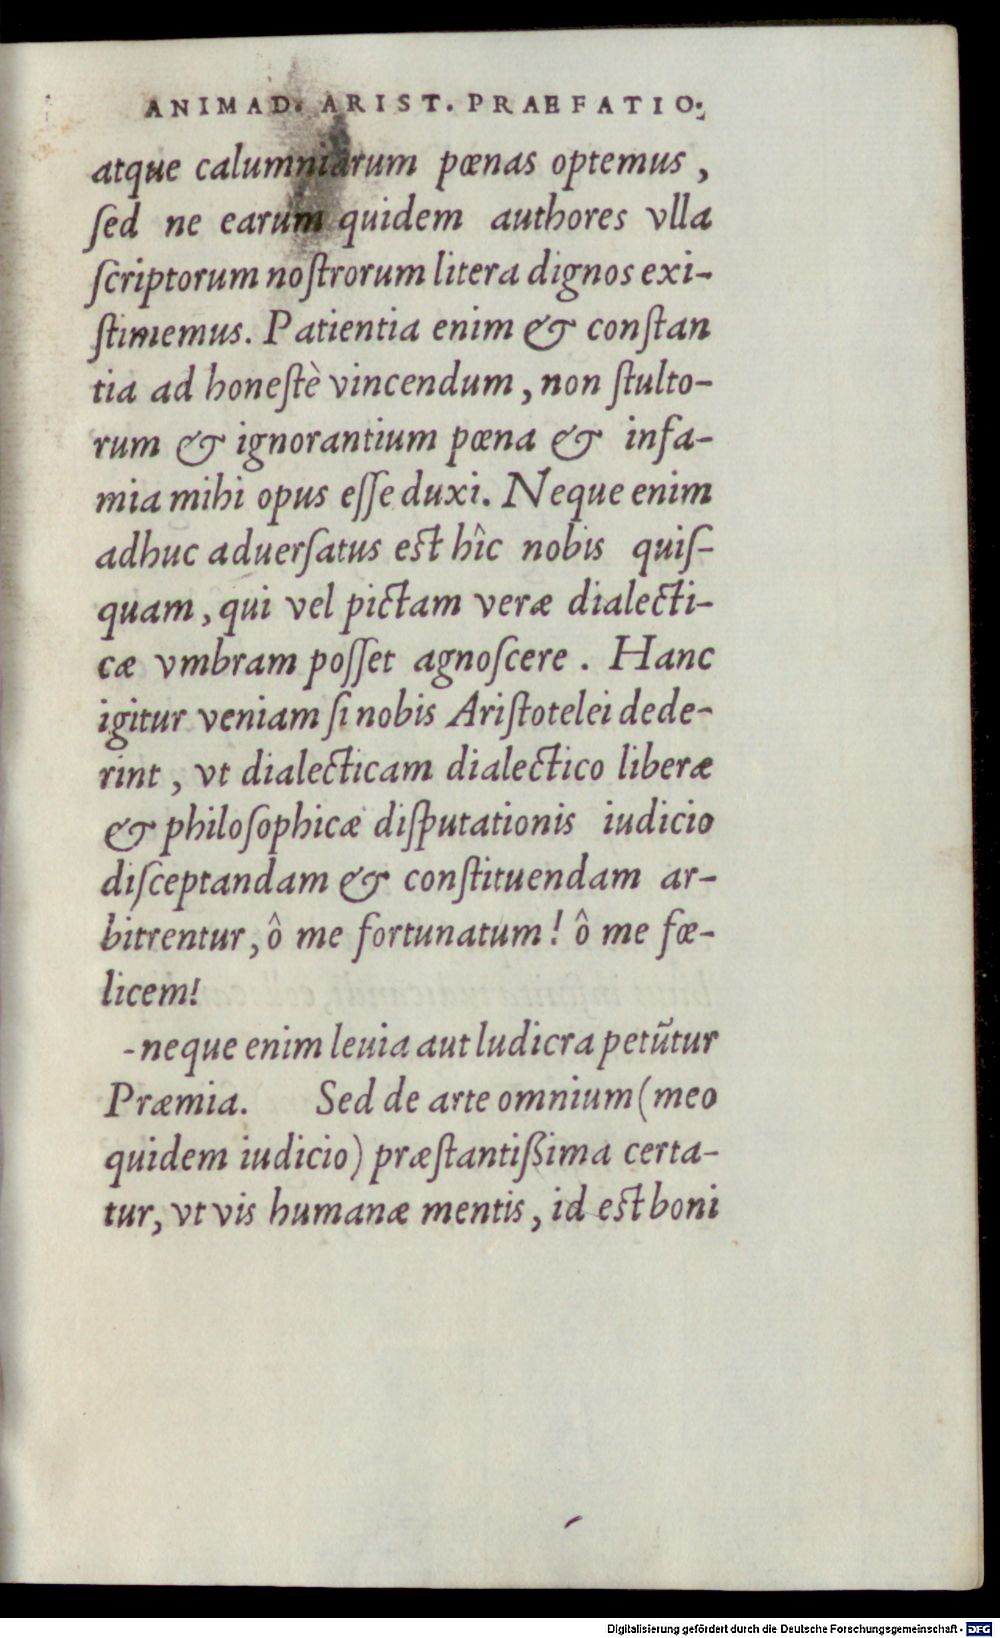 ANIMAD. ARIST. PRAEFATIO.
atque calumniarum pœnas optemus ,
ſed ne earum quidem authores vlla
ſcriptorum noſtrorum litera dignos exi-
ſtimemus. Patientia enim & conſtan
tia ad honeſtè vincendum, non ſtulto-
rum & ignorantium pœna & infa-
mia mihi opus eſſe duxi. Neque enim
adhuc aduerſatus eſt hîc nobis quiſ-
quam, qui vel pictam veræ dialecti-
cæ vmbram poſſet agnoſcere . Hanc
igitur veniam ſi nobis Ariſtotelei dede-
rint , vt dialecticam dialectico liberæ
& philoſophicæ diſputationis iudicio
diſceptandam & conſtituendam ar-
bitrentur, ô me fortunatum! ô me fœ-
licem!
-neque enim leuia aut ludicra petūtur
Præmia. Sed de arte omnium (meo
quidem iudicio) præſtantiſsima certa-
tur, vt vis humanæ mentis, id eſt boni
Digitalisierung gefördert durch die Deutsche Forschungsgemeinschaft - DFG